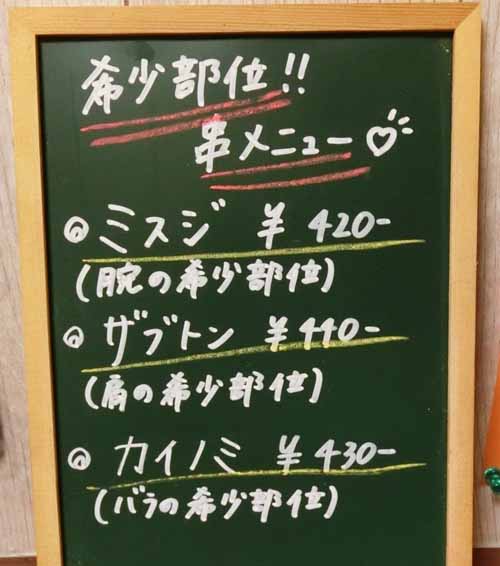 希少部位!!
串メニュー♡
◎ミスジ ¥420-
(腕の希少部位)
◎ザブトン ¥440-
(肩の希少部位)
◎カイノミ ¥430-
(バラの希少部位)